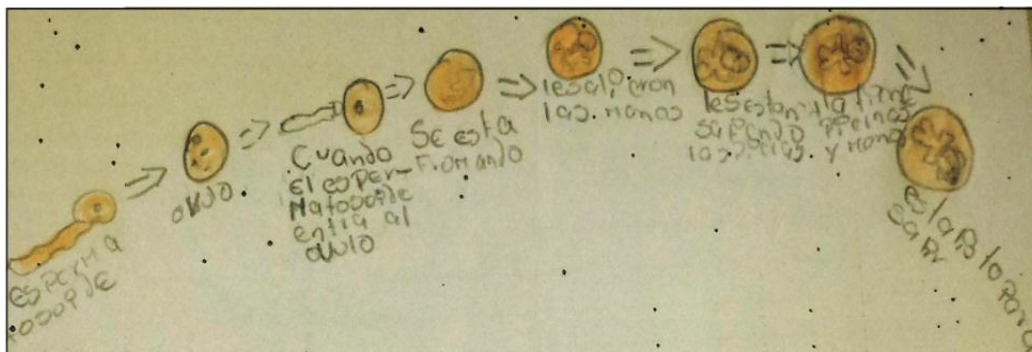 esperma
tosoide
oVulo
Cuando
el esper-
Matosoide
entra al
oVulo
Se esta
Fromando
le salieron
las manos
le estan
saliendo
las
ya tiene
Piernas
y manos
Esta listo Para
salir